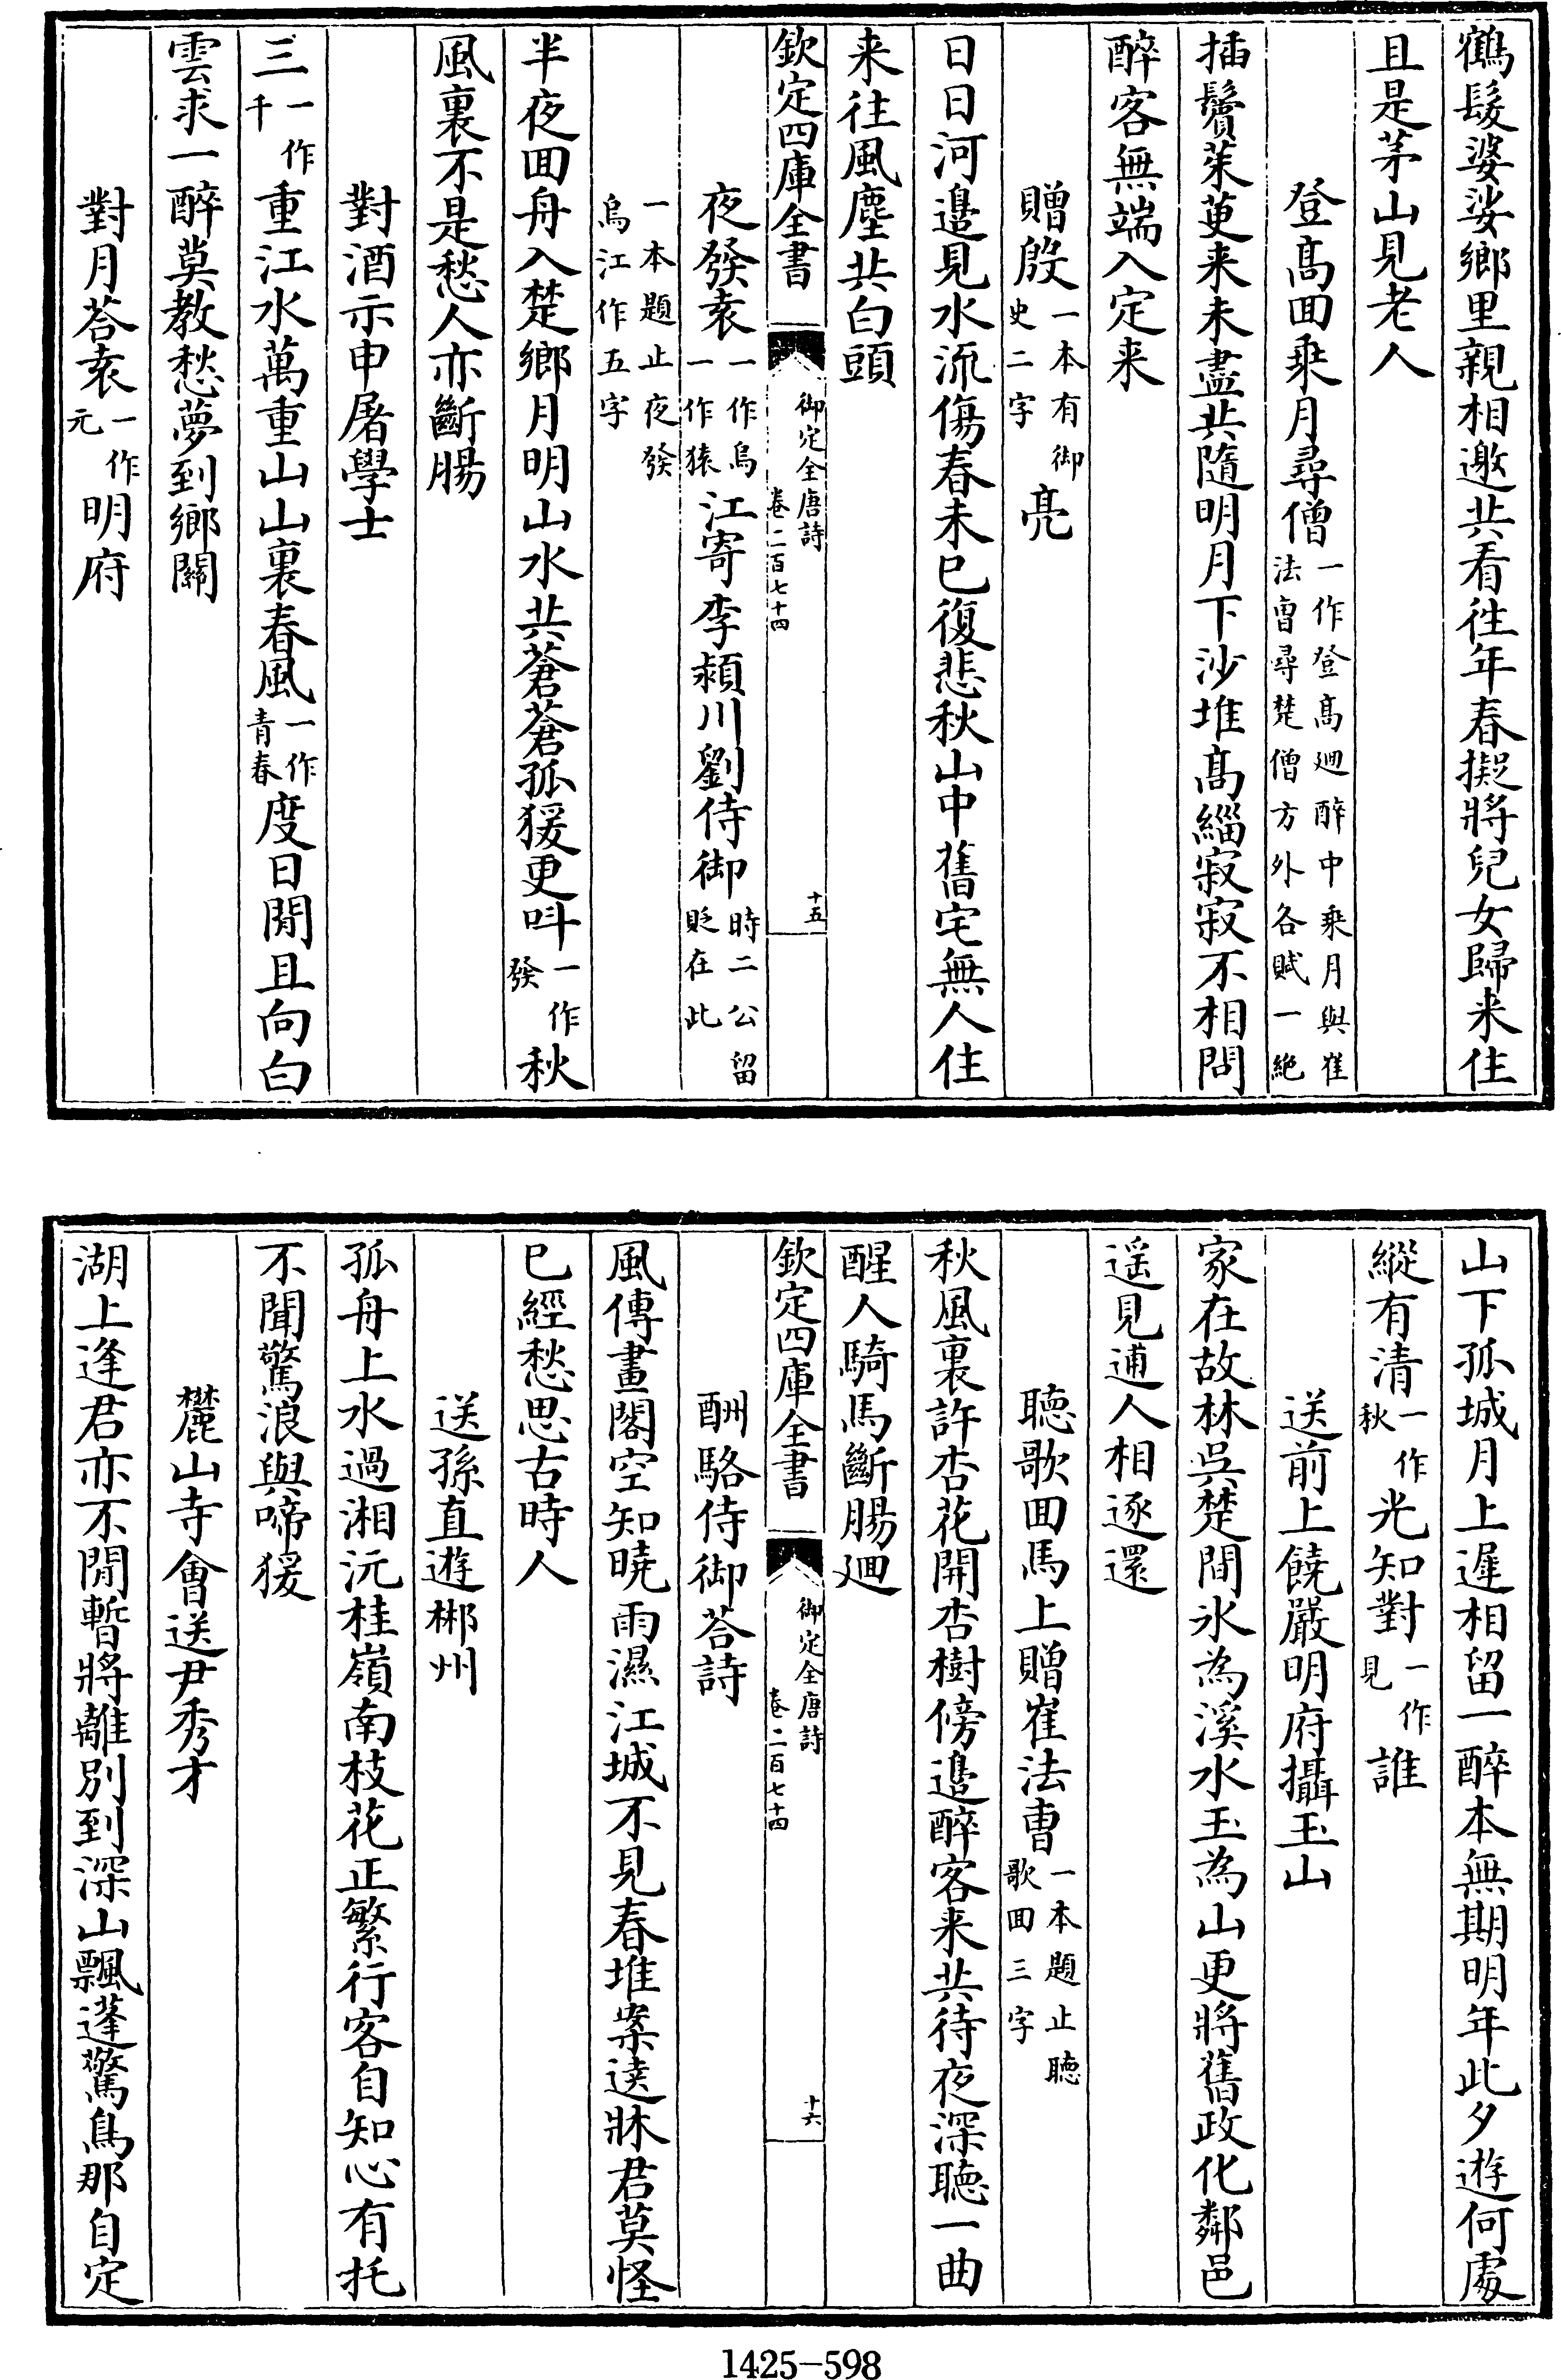 鶴髮婆娑鄉里親相邀共看往年春擬將兒女歸来住
且是茅山見老人
登髙囬乘月尋僧一作登髙迴醉中乘月與崔法曺尋楚僧方外各賦一絶
插鬢茱萸来未盡共隨明月下沙堆髙緇寂寂不相問
醉客無端入定来
贈殷一本有御史二字亮
日日河邉見水流傷春未已復悲秋山中舊宅無人住
来往風塵共白頭
欽定四庫全書
御定全唐詩
卷二百七十四
十五
夜發袁一作烏一作猿江寄李潁川劉侍御時二公留貶在此
一本題止夜發烏江作五字
半夜囬舟入楚鄉月明山水共蒼蒼孤猨更呌一作發秋
風裏不是愁人亦斷腸
對酒示申屠學士
三一作千重江水萬重山山裏春風一作青春度日閒且向白
雲求一醉莫教愁夢到鄉關
對月荅袁一作元明府
山下孤城月上遲相留一醉本無期明年此夕遊何處
縱有清一作秋光知對一作見誰
送前上饒嚴明府攝玉山
家在故林吳楚間氷為溪水玉為山更將舊政化鄰邑
遥見逋人相逐還
聽歌囬馬上贈崔法曺一本題止聽歌囬三字
秋風裏許杏花開杏樹傍邉醉客来共待夜深聽一曲
醒人騎馬斷腸迴
欽定四庫全書
御定全唐詩
卷二百七十四
十六
酬駱侍御荅詩
風傳畫閣空知曉雨濕江城不見春堆案逹牀君莫怪
已經愁思古時人
送孫直遊郴州
孤舟上水過湘沅桂嶺南枝花正繁行客自知心有托
不聞驚浪與啼猨
麓山寺會送尹秀才
湖上逢君亦不閒暫將離別到深山飄蓬驚鳥那自定
1425-598